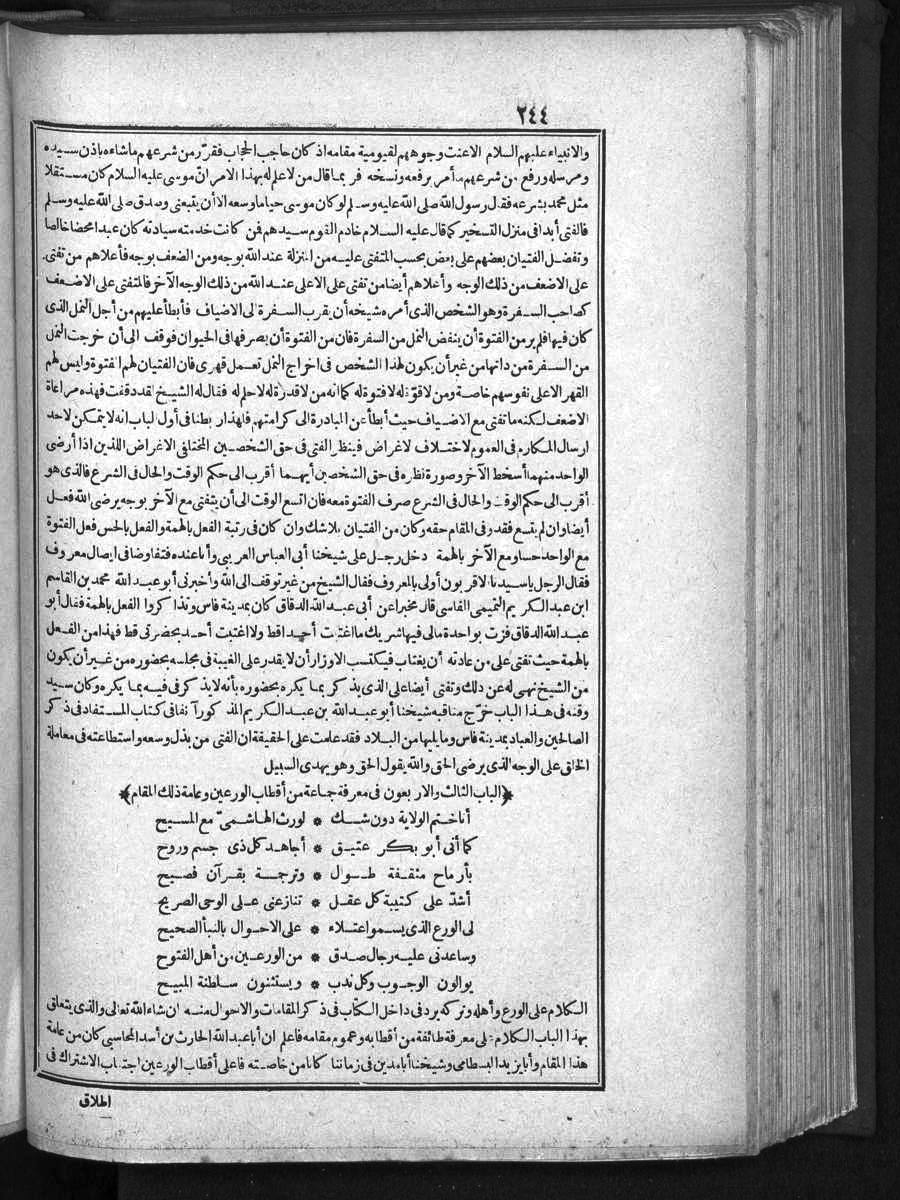 ٢٤٤
والانبياء عليهم السلام الاعنت وجوههم لقيومية مقامه اذ كان حاجب الحجاب فقرّر من شرعهم ما شاءه باذن سيده
ومرسله ورفع من شرعهم ما أمر برفعه ونسخه فربما قال من لا علم له بهذا الامر ان موسى عليه السلام كان مستقلا
مثل محمد بشرعه فقال رسول الله صلى الله عليه وسلم لو كان موسى حيا ما وسعه الا أن يتبعنى وصدق صلى الله عليه وسلم
فالفتى أبدا فى منزل التسخير كما قال عليه السلام خادم القوم سيدهم فمن كانت خدمته سيادته كان عبدا محضا خالصا
وتفضل الفتيان بعضهم على بعض بحسب المتفتى عليه من المنزلة عند الله بوجه ومن الضعف بوجه فأعلاهم من تفتى
على الاضعف من ذلك الوجه وأعلاهم أيضا من تفتى على الاعلى عند الله من ذلك الوجه الآخر فالمتفتى على الاضعف
كصاحب السفرة وهو الشخص الذى أمره شيخه أن يقرب السفرة الى الاضياف فأبطأ عليهم من أجل النمل الذى
كان فيها فلم ير من الفتوة أن ينفض النمل من السفرة فان من الفتوة أن يصرفها فى الحيوان فوقف الى أن خرجت النمل
من السفرة من ذاتها من غير أن يكون لهذا الشخص فى اخراج النمل تعمل قهرى فان الفتيان لهم الفتوة وليس لهم
القهر الا على نفوسهم خاصة ومن لا قوّة له لا فتوة له كما انه من لا قدرة له لا حلم له فقال له الشيخ لقد دققت فهذه مراعاة
الاضعف لكنه ما تفتى مع الاضياف حيث أبطأ عن المبادرة الى كرامتهم فلهذا ربطنا فى أول الباب انه لا يتمكن لاحد
ارسال المكارم فى العموم لاختلاف الاغراض فينظر الفتى فى حق الشخصين المختلفى الاغراض اللذين اذا أرضى
الواحد منهما أسخط الآخر وصورة نظره فى حق الشخصين أيهما أقرب الى حكم الوقت والحال فى الشرع فالذى هو
أقرب الى حكم الوقت والحال فى الشرع صرف الفتوة معه فان اتسع الوقت الى أن يتفتى مع الآخر بوجه يرضى الله فعل
أيضا وان لم يتسع فقد وفى المقام حقه وكان من الفتيان بلا شك وان كان فى رتبة الفعل بالهمة والفعل بالحس فعل الفتوة
مع الواحد حسا ومع الآخر بالهمة دخل رجل على شيخنا أبى العباس العريبى وأنا عنده فتفاوضا فى ايصال معروف
فقال الرجل ياسيدنا الاقربون أولى بالمعروف فقال الشيخ من غير توقف الى الله وأخبرنى أبو عبد الله محمد بن القاسم
ابن عبد الكريم التميمى الفاسى قال مخبرا عن أبى عبد الله الدقاق كان بمدينة فاس وتذاكروا الفعل بالهمة فقال أبو
عبد الله الدقاق فزت بواحدة مالى فيها شريك ما اغتبت أحدا قط ولا اغتبت أحد بحضرتى قط فهذا من الفعل
بالهمة حيث تفتى على من عادته أن يغتاب فيكتسب الاوزار أن لا يقدر على الغيبة فى مجلسه بحضوره من غير أن يكون
من الشيخ نهى له عن ذلك وتفتى أيضا على الذى يذكر بما يكره بحضوره بأنه لا يذكر فى فيه بما يكره وكان سيد
وقته فى هذا الباب خرّج مناقبه شيخنا أبو عبد الله بن عبد الكريم المذكور آنفا فى كتاب المستفاد فى ذكر
الصالحين والعباد بمدينة فاس وما يليها من البلاد فقد علمت على الحقيقة ان الفتى من بذل وسعه واستطاعته فى معاملة
الخلق على الوجه الذى يرضى الحق والله يقول الحق وهو يهدى السبيل
﴿الباب الثالث والاربعون فى معرفة جماعة من أقطاب الورعين وعامة ذلك المقام﴾
أنا ختم الولاية دون شك * لورث الهاشمىّ مع المسيح
كما أنى أبو بكر عتيق * أجاهد كل ذى جسم وروح
بأرماح مثقفة طوال * وترجمة بقرآن فصيح
أشدّ على كتيبة كل عقل * تنازعنى على الوحى الصريح
لى الورع الذى يسمو اعتلاء * على الاحوال بالنبأ الصحيح
وساعدنى عليه رجال صدق * من الورعين من أهل الفتوح
يوالون الوجوب وكل ندب * ويستثنون سلطنة المبيح
الكلام على الورع وأهله وتركه يرد فى داخل الكتاب فى ذكر المقامات والاحوال منه ان شاء الله تعالى والذى يتعلق
بهذا الباب الكلام على معرفة طائفة من أقطابه وعموم مقامه فاعلم ان أبا عبد الله الحارث بن أسد المحاسبى كان من عامة
هذا المقام وأبا يزيد البسطامى وشيخنا أبا مدين فى زماننا كانا من خاصته فاعلى أقطاب الورعين اجتناب الاشتراك فى
اطلاق